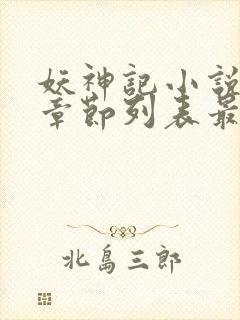 妖神記小說
章節列表最
北島三郎